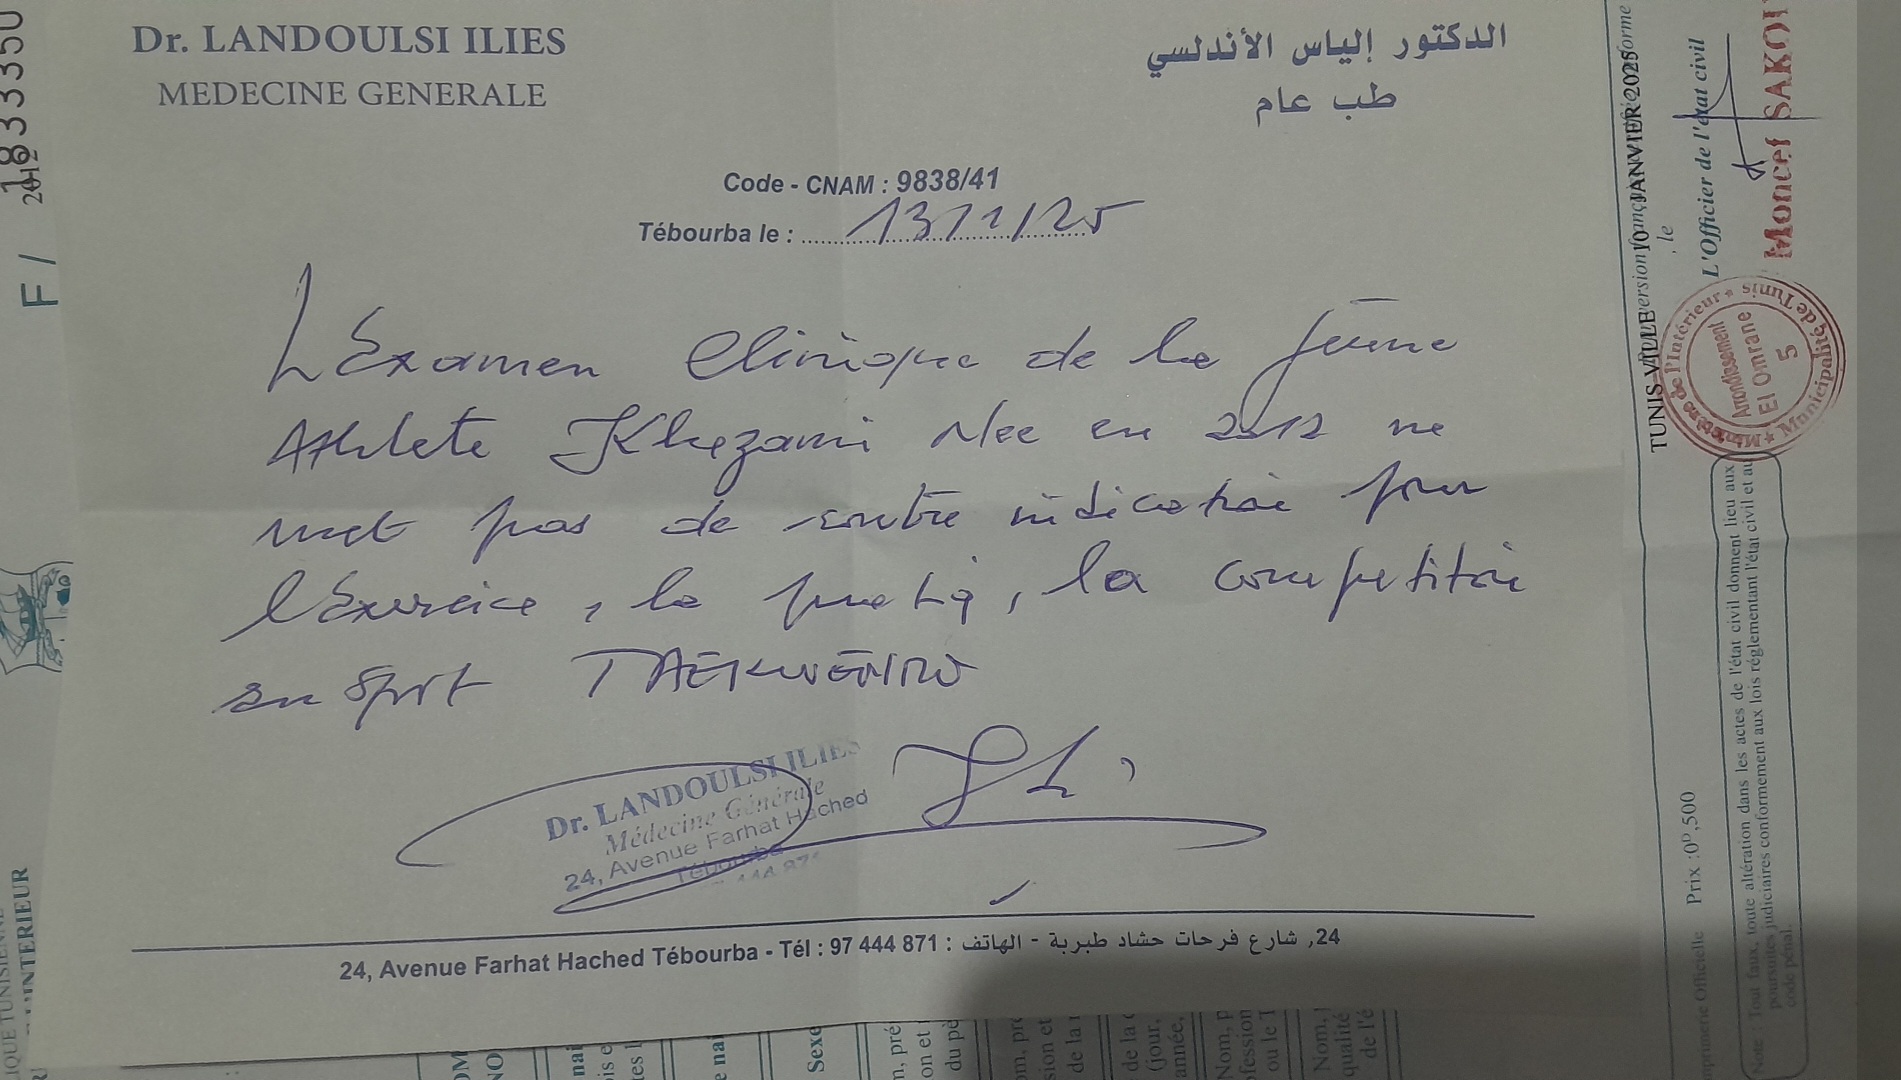 Dr. LANDOULSI ILIES
MEDECINE GENERALE
الدكتور إلياس الأندلسي
طب عام
Code - CNAM : 9838/41
Tébourba le : 13/1/25
L'Examen Clinique de la jeune
Athlete Khezami Nee en 2012 ne
met pas de contre indication pour
l'Exercice, la pratiq, la competition
en sport TAEKWENDO
Dr. LANDOULSI ILIES
Médecine Générale
24, Avenue Farhat Hached
Tébourba
24, Avenue Farhat Hached Tébourba - Tél : 97 444 871 : 24, شارع فرحات حشاد طبربة - الهاتف
F /
1833350
2012
INTERIEUR
TUNIS VILLE
10 JANVIER 2025
, le
L'Officier de l'état civil
Moncef
Ministère de l'Intérieur * Municipalité de Tunis *
Arrondissement
El Omrane
5
Prix :0ᴰ,500
Imprimerie Officielle
Note : Tout faux, toute altération dans les actes de l'état civil donnent lieu aux
poursuites judiciaires conformément aux lois réglementant l'état civil et au
code pénal.
Sexe